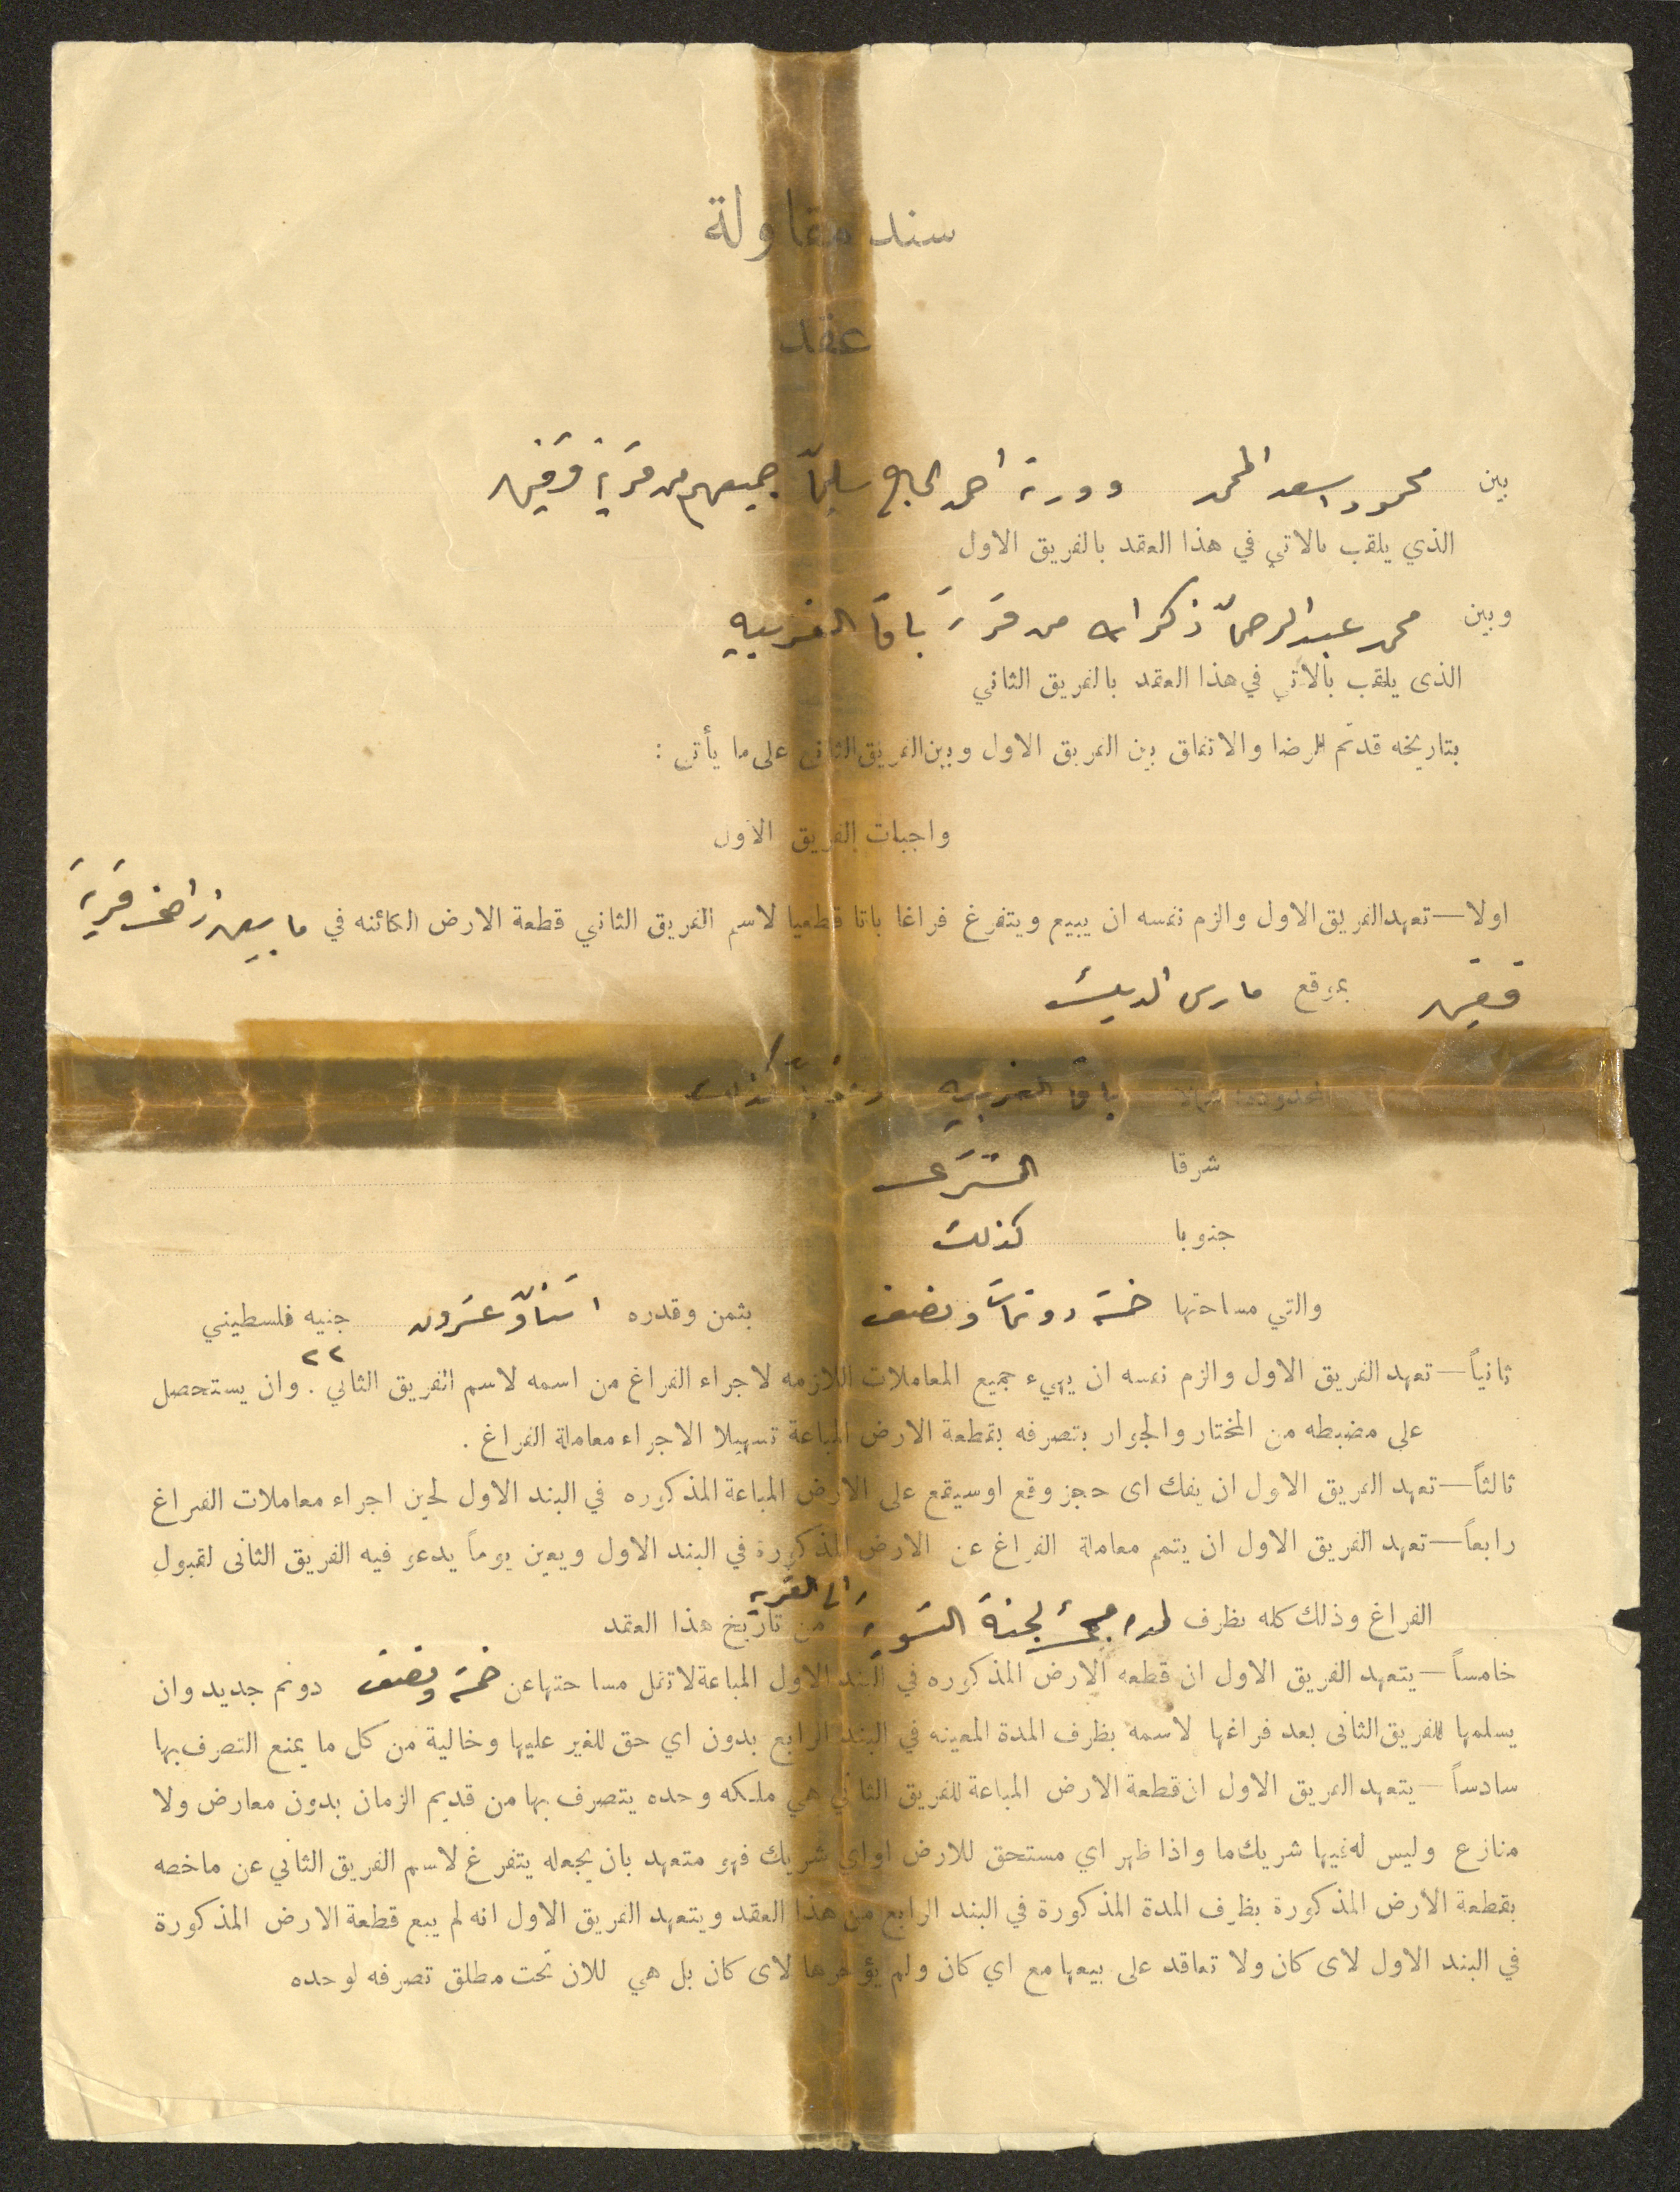 سند مقاولة
عقد
بين محمود اسعد المحمد وورثة احمد الحاج سليمان جميعهم من قرية قفين
الذي يلقب بالاتي في هذا العقد بالفريق الاول
وبين محمد عبدالرحمن ذكرالله من قرية باقة الغربيه
الذى يلقب بالاتي في هذا العقد بالفريق الثاني
بتاريخه قد تم الرضا والاتفاق بين الفريق الاول وبين الفريق الثاني على ما يأتي :
واجبات الفريق الاول
اولا — تعهد الفريق الاول والزم نفسه ان يبيع ويتفرغ فراغا باتا قطعيا لاسم الفريق الثاني قطعة الارض الكائنه في ما بين اراضي قرية
قفين بموقع مارس الديك
المحدودة شمالا باقة الغربيه
شرقا المشتري
جنوبا كذلك
والتي مساحتها خمسة دونمات ونصف بثمن وقدره اثنان وعشرون جنيه فلسطيني
٢٢
ثانياً — تعهد الفريق الاول والزم نفسه ان يهيء جميع المعاملات اللازمه لاجراء الفراغ من اسمه لاسم الفريق الثاني . وان يستحصل
على مضبطه من المختار والجوار بتصرفه بقطعة الارض المباعة تسهيلا الاجراء معاملة الفراغ .
ثالثاً — تعهد الفريق الاول ان يفك اى حجز وقع او سيقع على الارض المباعة المذكوره في البند الاول لحين اجراء معاملات الفراغ
رابعاً — تعهد الفريق الاول ان يتمم معاملة الفراغ عن الارض المذكورة في البند الاول ويعين يوماً يدعو فيه الفريق الثانى لقبول
الى القرية
الفراغ وذلك كله بظرف لدا مجئ لجنة التسوية من تاريخ هذا العقد
خامساً — يتعهد الفريق الاول ان قطعه الارض المذكوره في البند الاول المباعة لا تقل مساحتها عن خمسة ونصف دونم جديد وان
يسلمها للفريق الثانى بعد فراغها لاسمه بظرف المدة المعينه في البند الرابع بدون اي حق للغير عليها وخالية من كل ما يمنع التصرف بها
سادساً — يتعهد الفريق الاول ان قطعة الارض المباعة للفريق الثاني هي ملكه وحده يتصرف بها من قديم الزمان بدون معارض ولا
منازع وليس له فيها شريك ما واذا ظهر اي مستحق للارض او اي شريك فهو متعهد بان يجعله يتفرغ لاسم الفريق الثاني عن ماخصه
بقطعة الارض المذكورة بظرف المدة المذكورة في البند الرابع من هذا العقد ويتعهد الفريق الاول انه لم يبع قطعة الارض المذكورة
في البند الاول لاى كان ولا تعاقد على بيعها مع اي كان ولم يؤجرها لاى كان بل هي للان تحت مطلق تصرفه لوحده